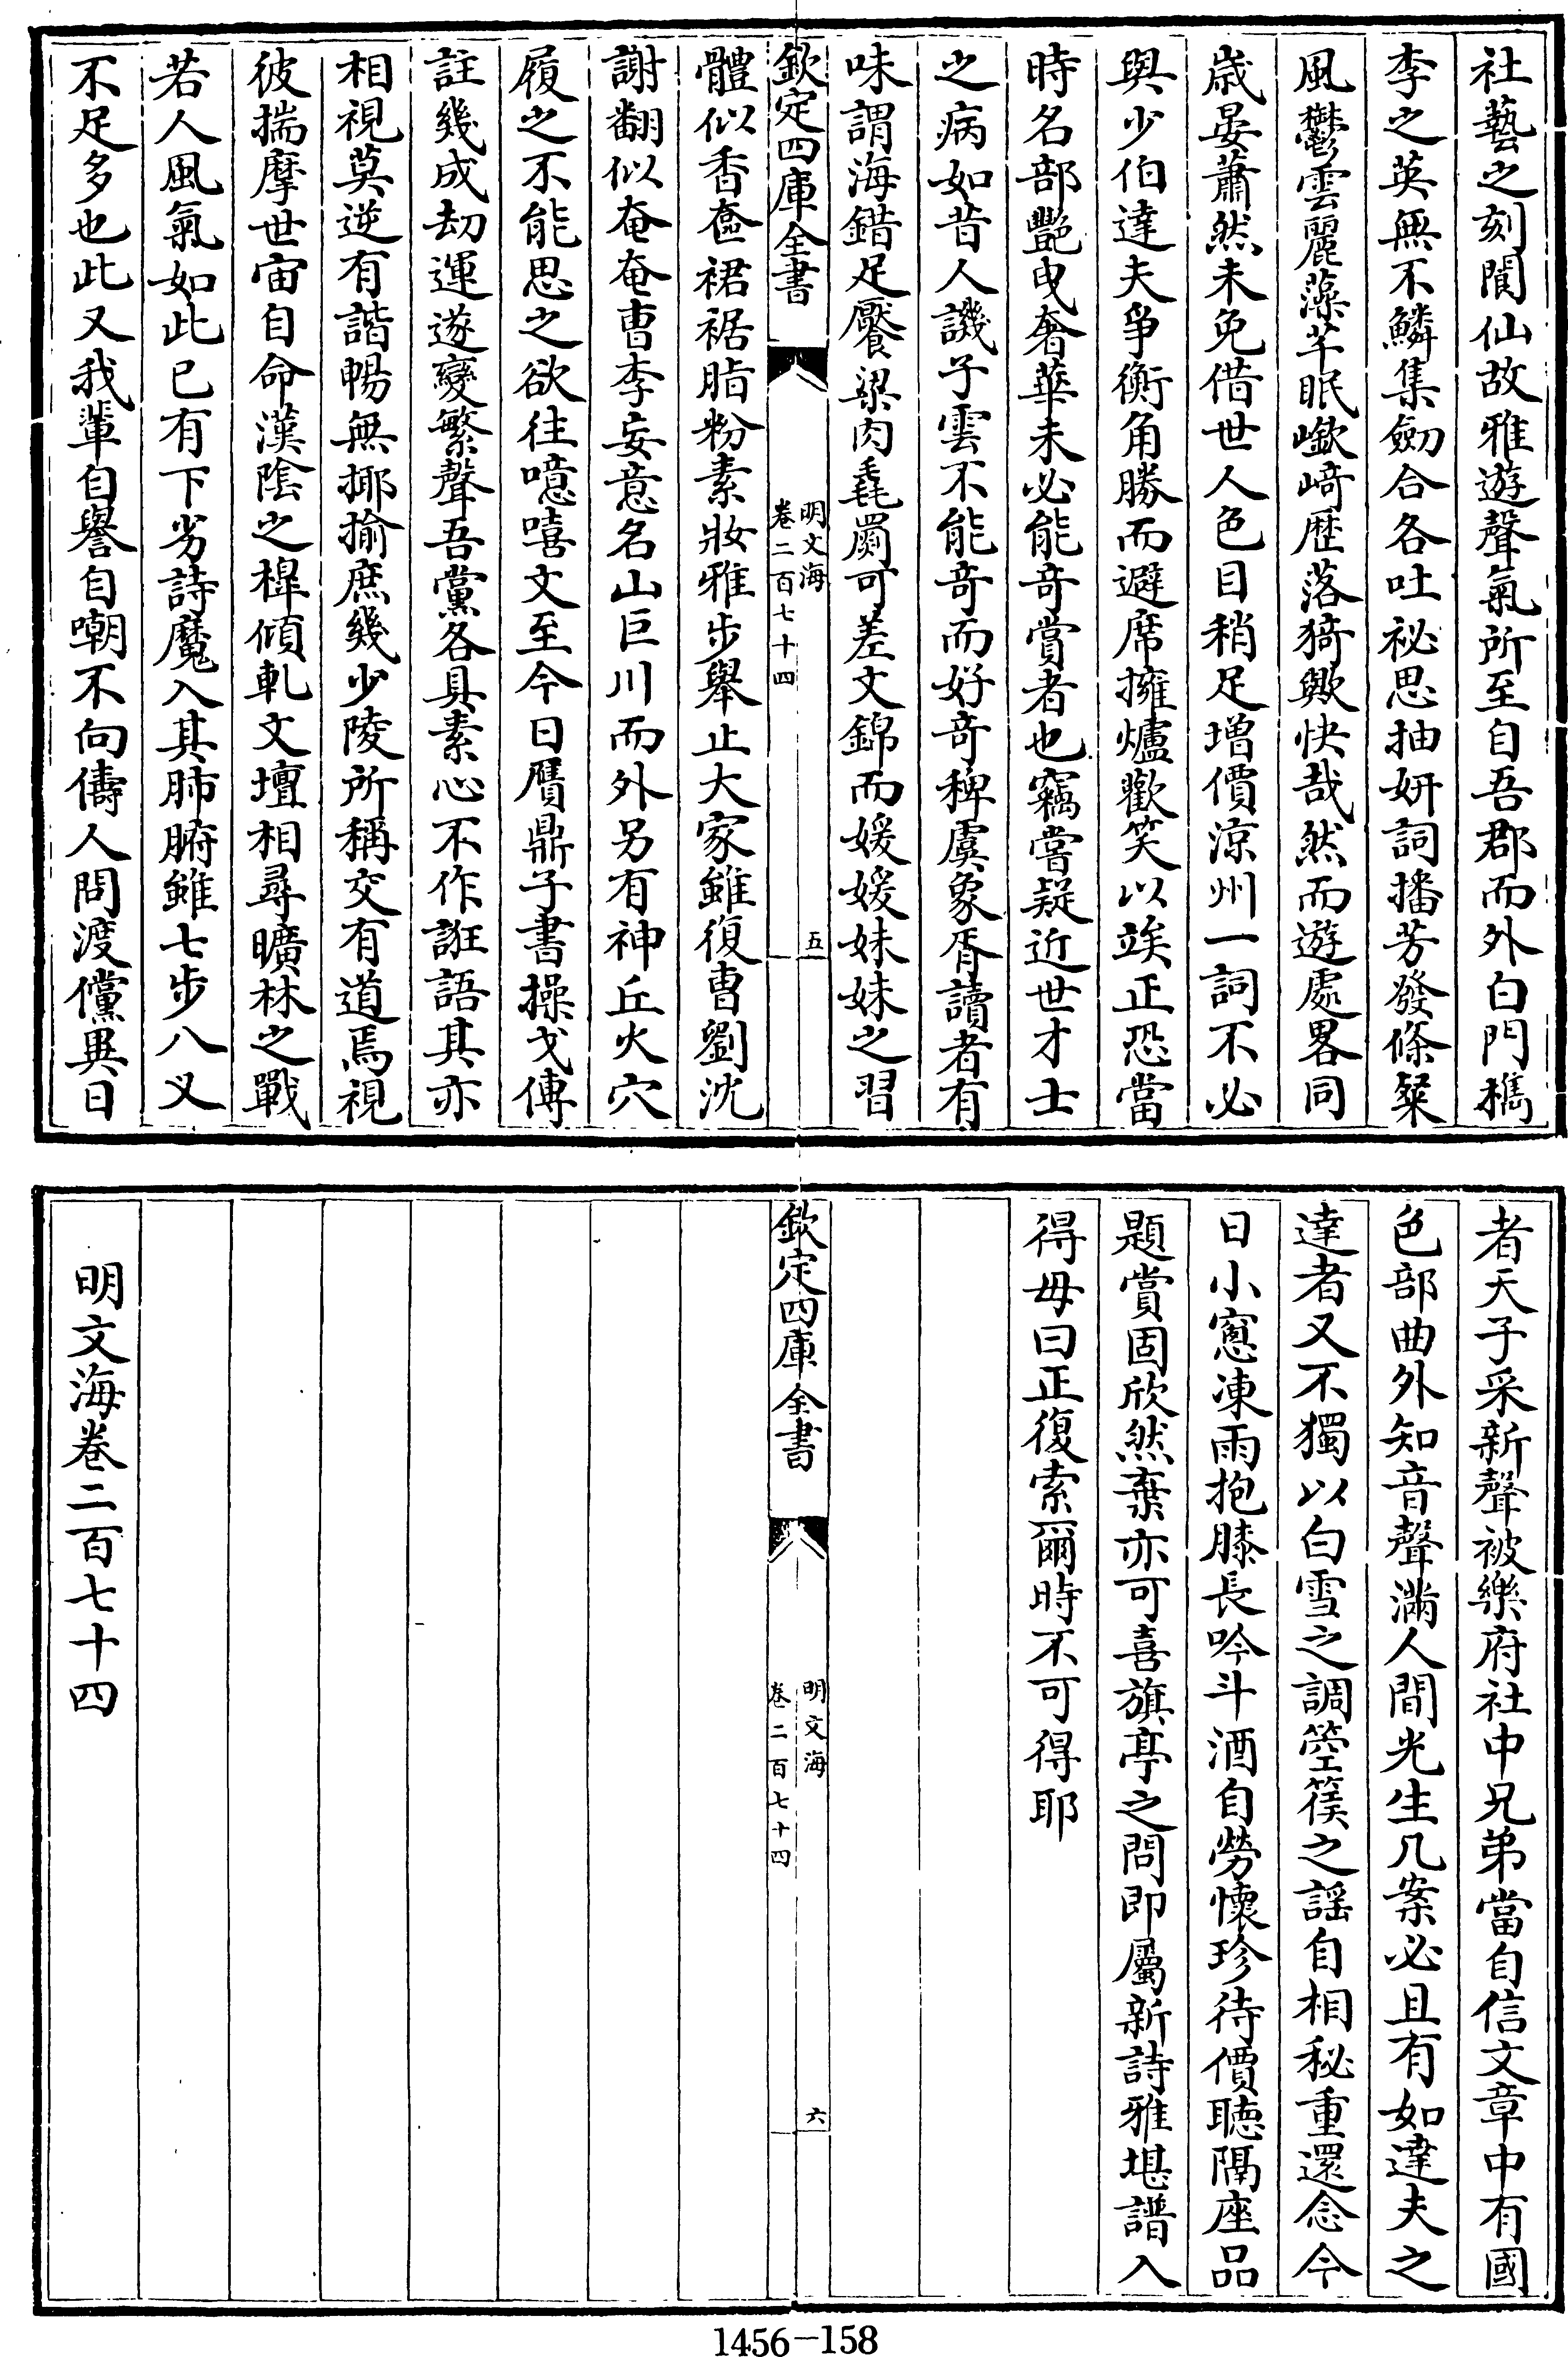 社藝之刻閬仙故雅遊聲氣所至自吾郡而外白門檇
李之英無不鱗集劒合各吐祕思抽妍詞播芳發條粲
風鬱雲麗藻芊眠嶔﨑歴落猗歟快哉然而遊處畧同
歳晏蕭然未免借世人色目稍足増價涼州一詞不必
與少伯達夫爭衡角勝而避席擁爐歡笑以竢正恐當
時名部豔曳奢華未必能竒賞者也竊嘗疑近世才士
之病如昔人譏子雲不能竒而好竒稗虞象胥讀者有
味謂海錯足饜粱肉毳罽可差文錦而媛媛妹妹之習
欽定四庫全書
明文海
卷二百七十四
五
體似香奩裙裾脂粉素妝雅步舉止大家雖復曹劉沈
謝翻似奄奄曹李妄意名山巨川而外另有神丘火穴
履之不能思之欲往噫嘻文至今日贋鼎子書操戈傳
註幾成劫運遂變繁聲吾黨各具素心不作誑語其亦
相視莫逆有諧暢無揶揄庶幾少陵所稱交有道焉視
彼揣摩世宙自命漢陰之槹傾軋文壇相尋曠林之戰
若人風氣如此已有下劣詩魔入其肺腑雖七步八叉
不足多也此又我輩自譽自嘲不向儔人問渡儻異日
者天子采新聲被樂府社中兄弟當自信文章中有國
色部曲外知音聲滿人間光生几案必且有如達夫之
達者又不獨以白雪之調箜篌之謡自相秘重還念今
日小窻凍雨抱膝長吟斗酒自勞懷珍待價聽隔座品
題賞固欣然棄亦可喜旗亭之問即屬新詩雅堪譜入
得毋曰正復索爾時不可得耶
欽定四庫全書
明文海
卷二百七十四
六
明文海卷二百七十四
1456-158